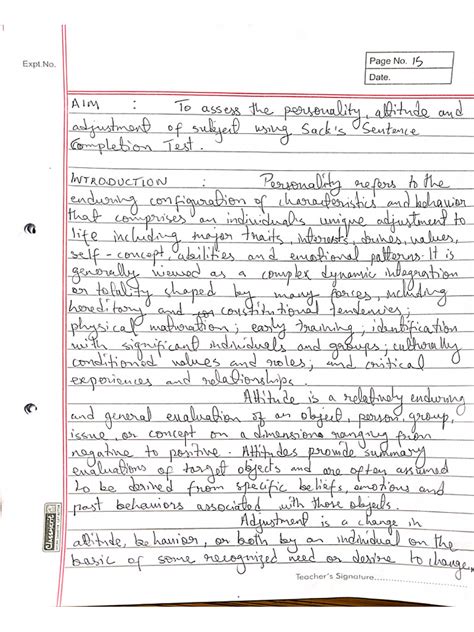 Expt.No.
Page No. 15
Date.
AIM : To assess the personality, attitude and
adjustment of subject using Sack's Sentence
Completion Test.
INTRODUCTION : Personality refers to the
enduring configuration of characteristics and behavior
that comprises an individual's unique adjustment to
life including major traits, interests, drives, values,
self-concept, abilities and emotional patterns. It is
generally viewed as a complex dynamic integration
or totality shaped by many forces, including
hereditary and constitutional tendencies;
physical maturation; early training; identification
with significant individuals and groups; culturally
conditioned values and roles; and critical
experiences and relationships.
Attitude is a relatively enduring
and general evaluation of an object, person, group,
issue, or concept on a dimension ranging from
negative to positive. Attitudes provide summary
evaluations of target objects and are often assumed
to be derived from specific beliefs, emotions and
past behaviors associated with those objects.
Adjustment is a change in
attitude, behavior, or both by an individual on the
basic of some recognized need or desire to change,
Teacher's Signature
Classmate